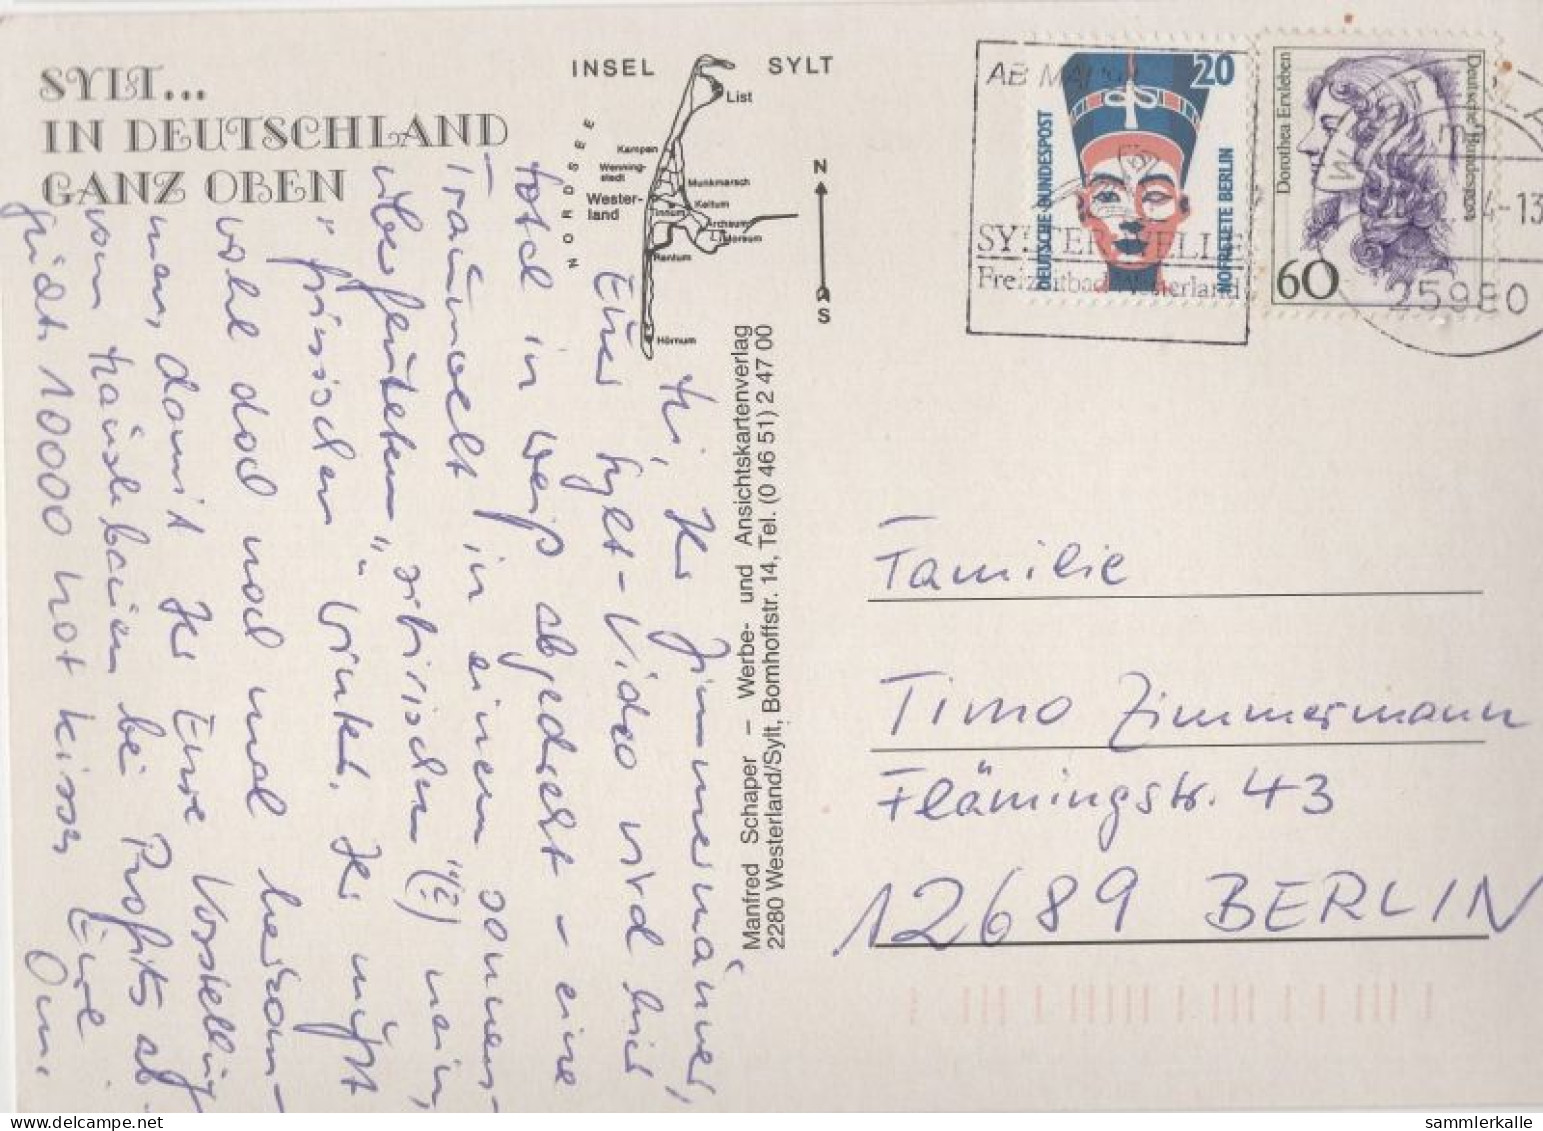 SYLT...
IN DEUTSCHLAND
GANZ OBEN
INSEL SYLT
NORDSEE
List
Kampen
Wenning-
stedt
Wester-
land
Munkmarsch
Tinnum
Keitum
Archsum
Morsum
Rantum
Hörnum
N
S
Manfred Schaper – Werbe- und Ansichtskartenverlag
2280 Westerland/Sylt, Bomhoffstr. 14, Tel. (0 46 51) 2 47 00
Hi, Ihr Zimmermänner,
Euer Sylt-Video wird hier
total in weiß abgedreht – eine
Traumwelt in einem sonnen-
überfluteten „sibirischen" (!?) nein,
„friesischen" Winter. Ihr müßt
wohl doch noch mal herkom-
men, damit Ihr Eure Vorstellung
vom bei Profits ab-
10000 hot kisses Eure
Omi.
AB MAI
SYLTER WELLE
Freizeitbad Westerland
20
DEUTSCHE BUNDESPOST
NOFRETETE BERLIN
Dorothea Erxleben
Deutsche Bundespost
60
-13
25980
Familie
Timo Zimmermann
Flämingstr. 43
12689 BERLIN
delcampe.net
sammlerkalle